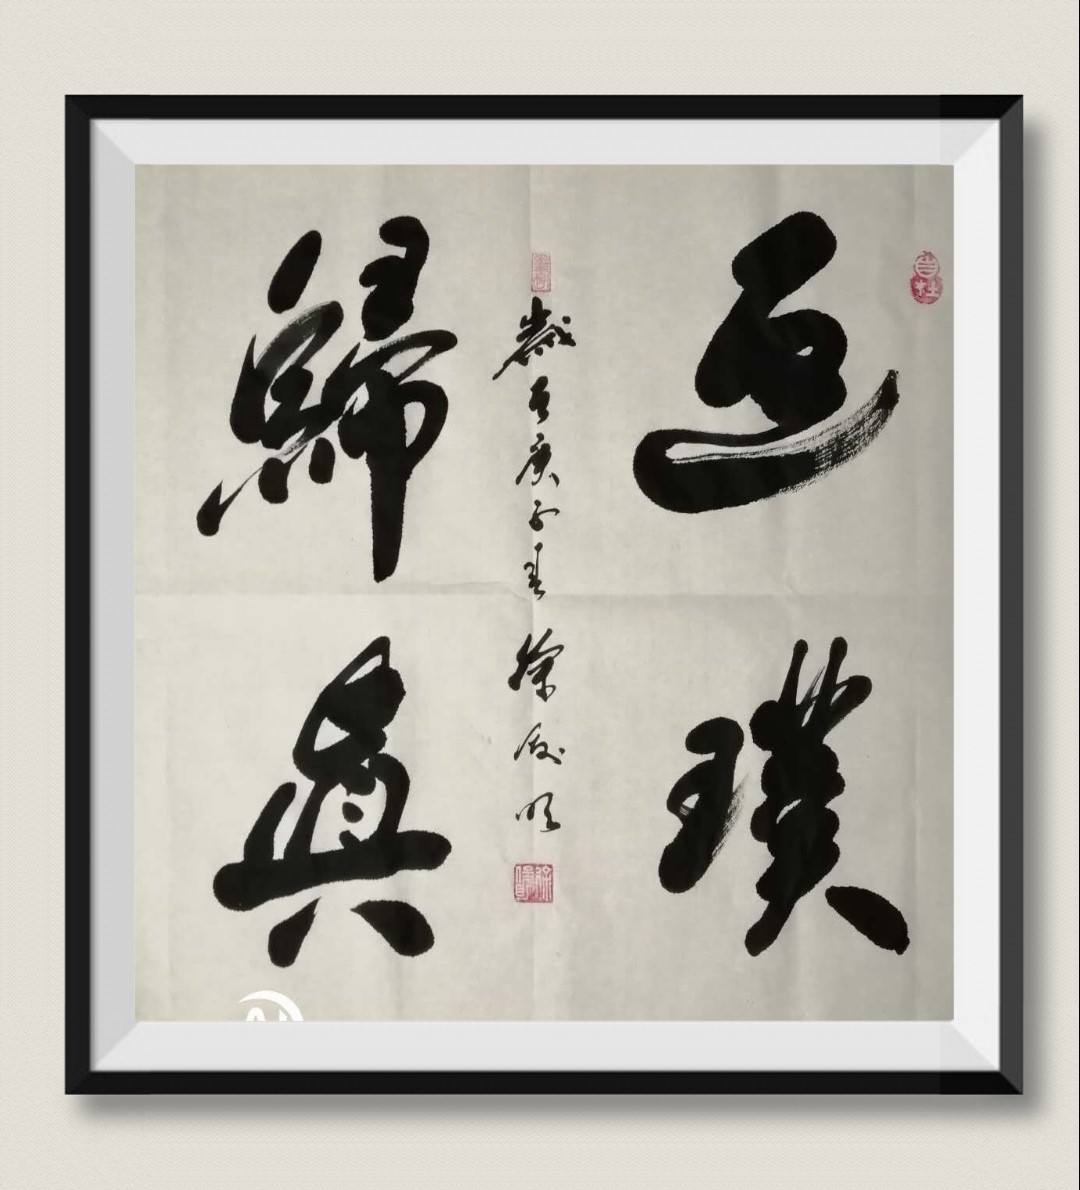 返璞
歸真
歲在庚子春 徐 明